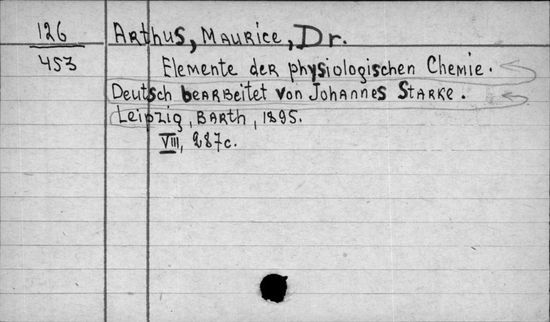 126
453
Arthus, Maurice, Dr.
Elemente der physiologischen Chemie.
Deutsch bearbeitet von Johannes Starke.
Leipzig, Barth, 1895.
VIII, 287c.